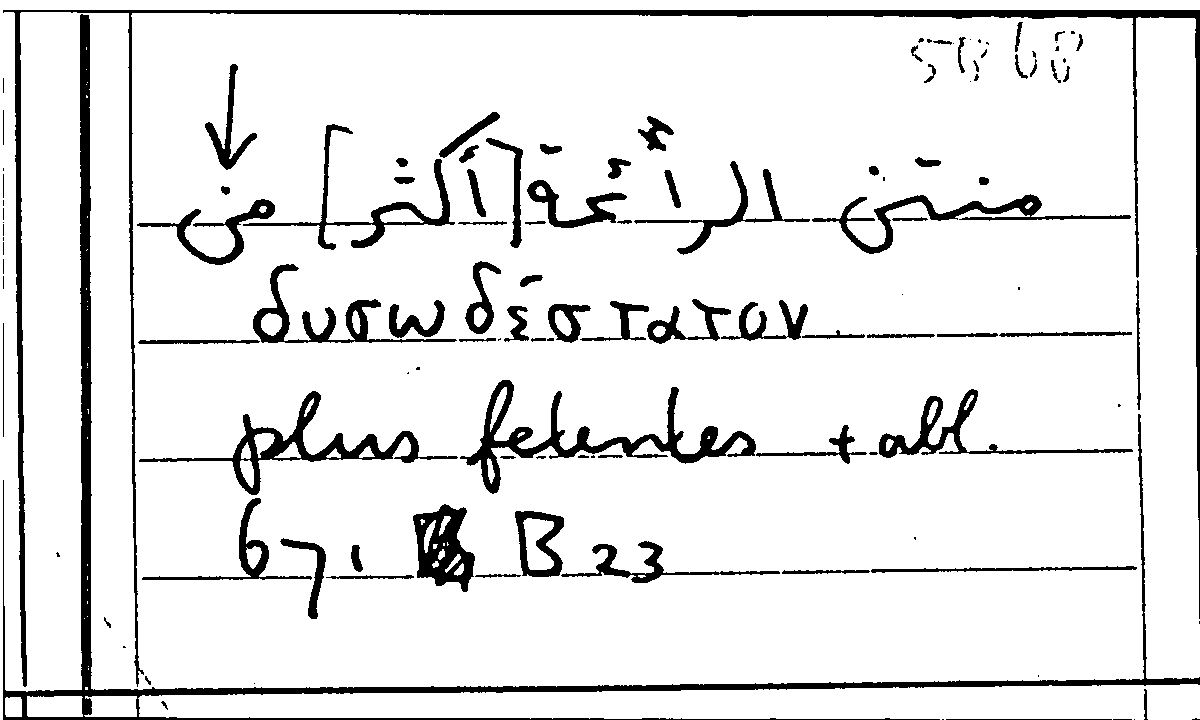 منتن الرائحة [أكثر] من
δυσωδέστατον
plus fetentes + abl.
671 B 23